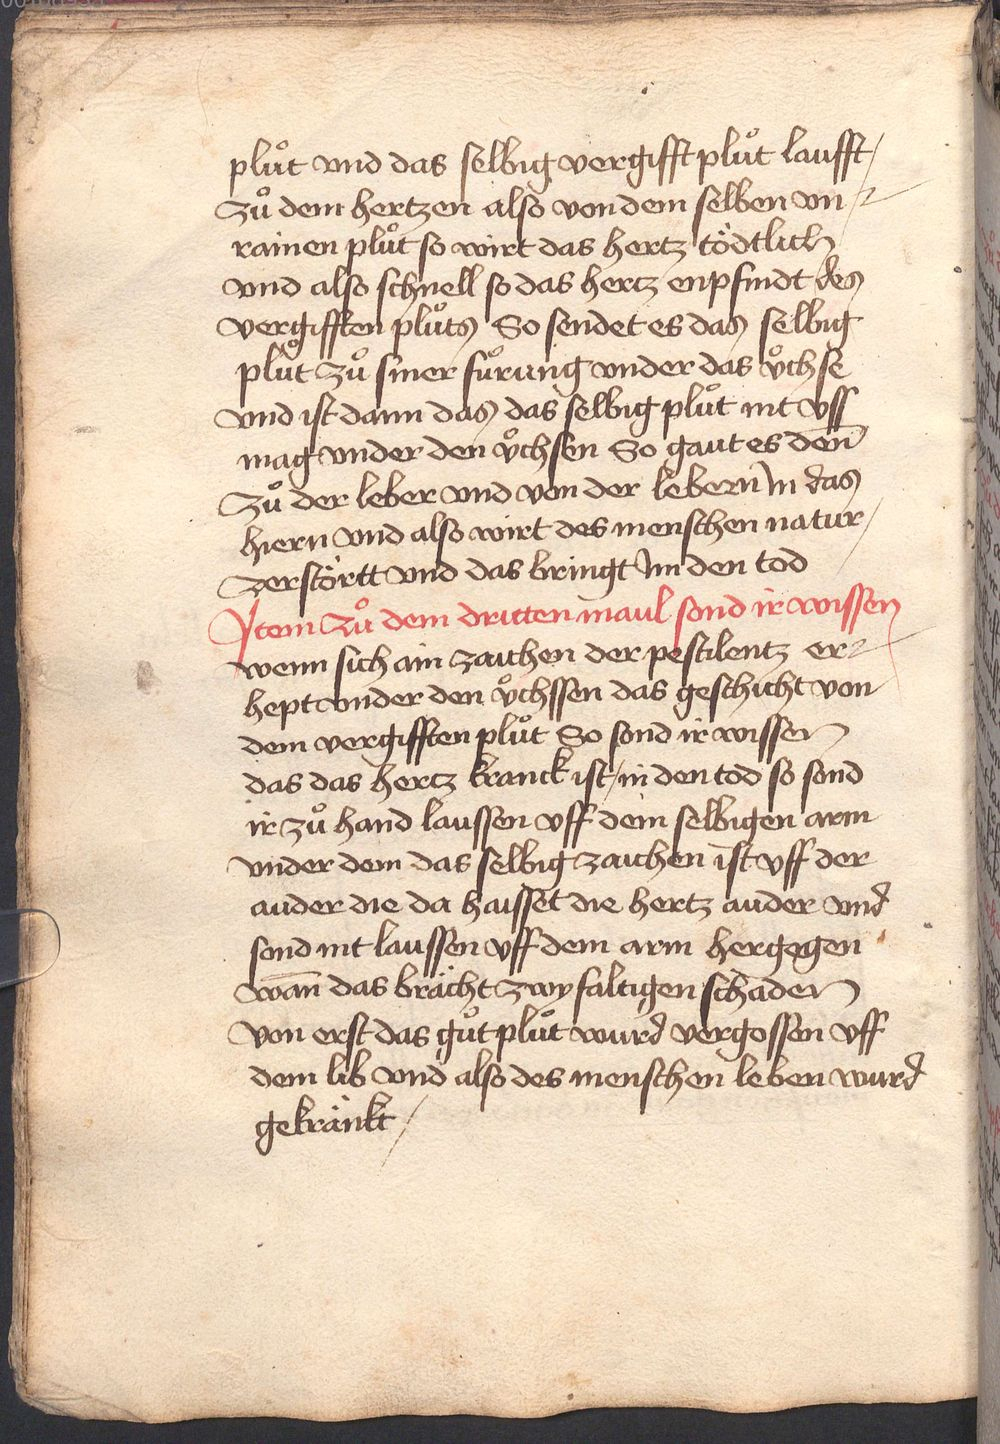 plůt vnd das selbig vergifft plůt laufft /
zů dem hertzen also von dem selben vn /
rainen plůt so wirt das hertz tödtlich
vnd also schnell so das hertz enpfindt des
vergifften plůts So sendet es das selbig
plůt zů siner fůrung vnder das ůchse
vnd ist dann das das selbig plůt nit vff
mag vnder den ůchsen So gaut es deñ
zů der leber vnd von der lebern In das
hiern vnd also wirt des menschen natur /
zerstörtt vnd das bringt Im den tod
Item zů dem dritten maul sond ir wissen
wenn sich ain zaichen der pestilentz er /
hept vnder den ůchssen das geschicht von
dem vergifften plůt So sond ir wissen
das das hertz kranck ist / in den tod so sond
ir zů hand laussen vff dem selbigen arm
vnder dem das selbig zaichen ist vff der
auder die da haisset die hertz auder vnd
sond nit laussen vff dem arm hergegen
wañ das brächt zwyfaltigen schaden
von erst das gůt plůt wurd vergossen vff
dem lib vnd also des menschen leben wurd
gekränkt /